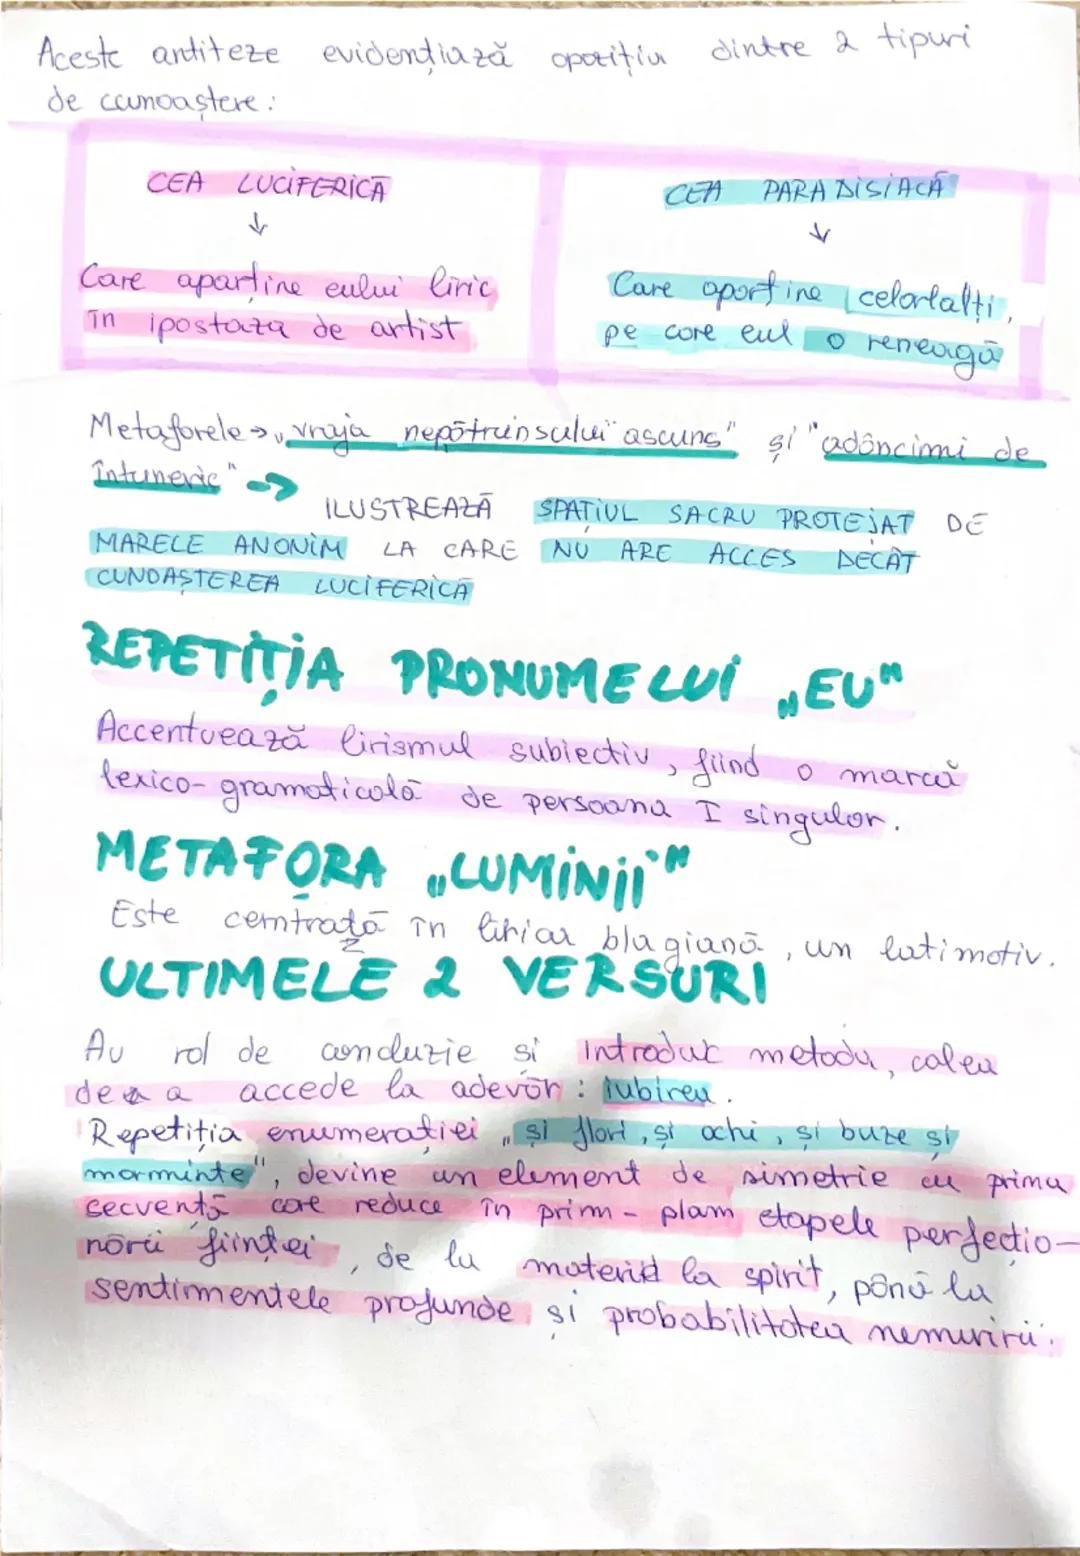 Aceste antiteze evidențiază opoziția dintre 2 tipuri
de cunoaștere:
CEA LUCIFERICĂ
↓
Care aparține eului liric
în ipostaza de artist
CEA PARADISIACĂ
↓
Care aparține celorlalți,
pe care eul o reneagă
Metaforele → „vraja nepătrunsului ascuns" și "adâncimi de
întuneric" →
ILUSTREAZĂ SPAȚIUL SACRU PROTEJAT DE
MARELE ANONIM LA CARE NU ARE ACCES DECÂT
CUNOAȘTEREA LUCIFERICĂ
REPETIȚIA PRONUMELUI „EU"
Accentuează lirismul subiectiv, fiind o marcă
lexico-gramaticală de persoana I singular.
METAFORA „LUMINII"
Este centrată în lirica blagiană, un latimotiv.
ULTIMELE 2 VERSURI
Au rol de concluzie și introduc metoda, calea
de a accede la adevăr: iubirea.
Repetiția enumerației „și flori, și ochi, și buze și
morminte", devine un element de simetrie cu prima
secvență care reduce în prim-plam etapele perfecțio-
nării ființei, de la materie la spirit, până la
sentimentele profunde și probabilitatea nemuririi.